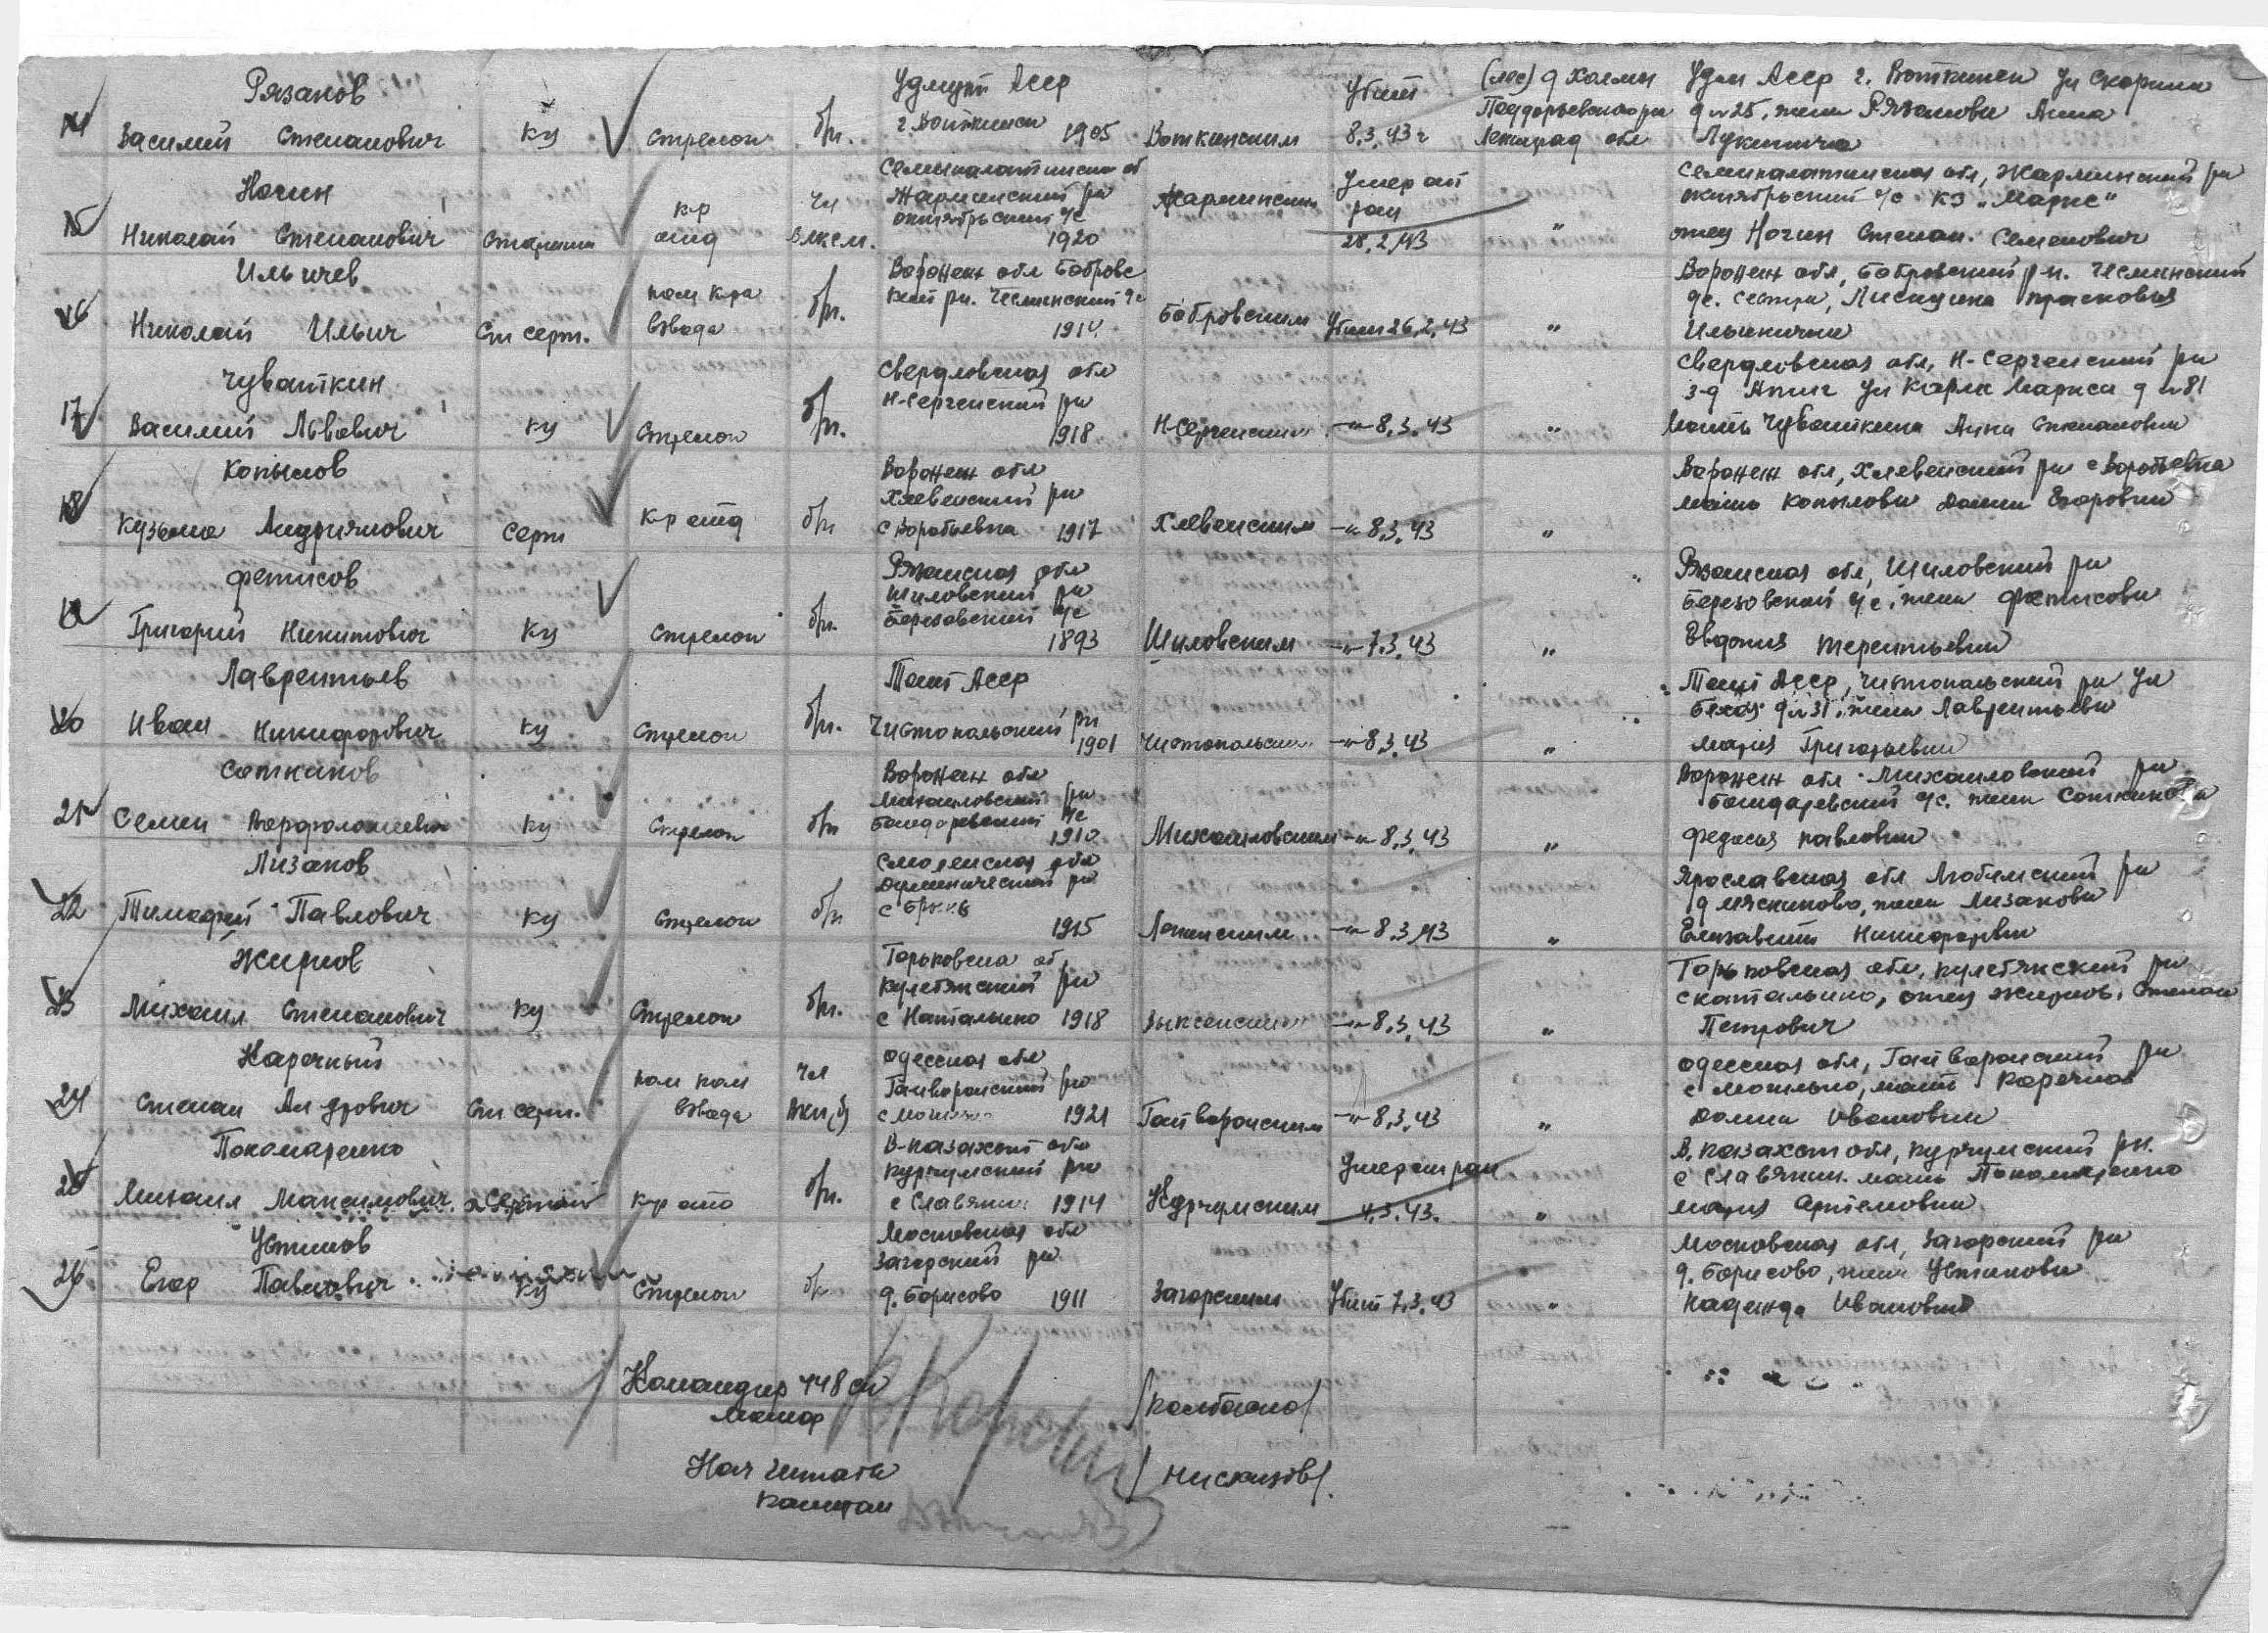 14 Рязанов
Василий Степанович ку стрелок б/п.
Удмурт Асср
г. Воткинск 1905 Воткинским
Убит
8.3.43 г
(лес) д Холмы
Поддорьевского р-н
Ленинград обл
Удм Асср г. Воткинск ул
д №25, жена Рязанова Анна
Лукинична
15 Ногин
Николай Степанович Старшина
к-р
отд
чл
влксм.
Семипалатинская об
Жарминский рн
октябрьский с/с
1920
Жарминским
Умер от
ран
28.2.43
"
Семипалатинская обл, Жарминский рн
октябрьский с/с кз „Маркс"
отец Ногин Степан. Семенович
16 Ильичев
Николай Ильич Ст серж.
пом к-ра
взвода
б/п.
Воронеж обл Бобровс
кий рн. Чесменский с/с
1914
Бобровским Убит 26.2.43 "
Воронеж обл, Бобровский р-н. Чесменский
с/с. сестра, Прасковья
Ильинична
17 Чуваткин
Василий Львович ку Стрелок б/п.
Свердловская обл
Н-Сергенский рн
1918
Н-Сергенским -"- 8.3.43 "
Свердловская обл, Н-Сергенский рн
з-д Атиг ул Карла Маркса д №81
Мать Чуваткина Анна Степановна
18 Копылов
Кузьма Андриянович Серж к-р отд б/п
Воронеж обл
Хлевенский рн
с Воробьевка 1917
Хлевенским -"- 8.3.43 "
Воронеж обл, Хлевенский рн с Воробьевка
мать Копылова Егоровна
19 Фетисов
Григорий Никитович ку стрелок б/п.
Рязанская обл
Шиловский рн
Березовский с/с
1893
Шиловским -"- 7.3.43 "
Рязанская обл, Шиловский рн
Березовский с/с, жена Фетисова
Евдокия Терентьевна
20 Лаврентьев
Иван Никифорович ку Стрелок б/п.
Тат Асср
Чистопольский рн
1901
Чистопольским -"- 8.3.43 "
Тат Асср, Чистопольский рн ул
д №31, жена Лаврентьева
Мария Григорьевна
21 Соткинов
Семен Варфоломеевич ку Стрелок б/п
Воронеж обл
Михайловский рн
Бондаревский с/с
1910
Михайловским -"- 8.3.43 "
Воронеж обл Михайловский рн
Бондаревский с/с. жена Соткинова
Федосья Павловна
22 Лизаков
Тимофей Павлович ку Стрелок б/п
Смоленская обл
Думиничский рн
с Брынь
1915
Ленинским -"- 8.3.43 "
Ярославская обл Любимский рн
д Мяскиново, жена Лизакова
Елизавета Никифоровна
23 Жирнов
Михаил Степанович ку Стрелок б/п.
Горьковска об
Кулебякский рн
с Натальино 1918
Выксенским -"- 8.3.43 "
Горьковская обл, Кулебякский рн
с Натальино, отец Жирнов, Степан
Петрович
24 Каречный
Степан Андрович Ст серж.
пом ком
взвода
чл
вкп(б)
Одесская обл
Гайворонский рн
1921
Гайворонским -"- 8.3.43 "
Одесская обл, Гайворонский рн
с Могильно, мать Каречная
Ивановна
25 Пономаренко
Михаил Максимович к-р отд б/п.
В-Казахст обл
Курчумский рн
с Славянк 1914
Курчумским
Умер от ран
4.3.43. "
В. Казахст обл, Курчумский рн.
с Славянк. мать Пономаренко
Мария Артемовна
26 Устинов
Егор Павлович ку Стрелок б/п
Московская обл
Загорский рн
д. Борисово 1911
Загорским Убит 7.3.43 "
Московская обл, Загорский рн
д. Борисово, жена Устинова
Надежда Ивановна
Командир 448 сп
Майор /Колбасно/
Нач Штаба
Капитан